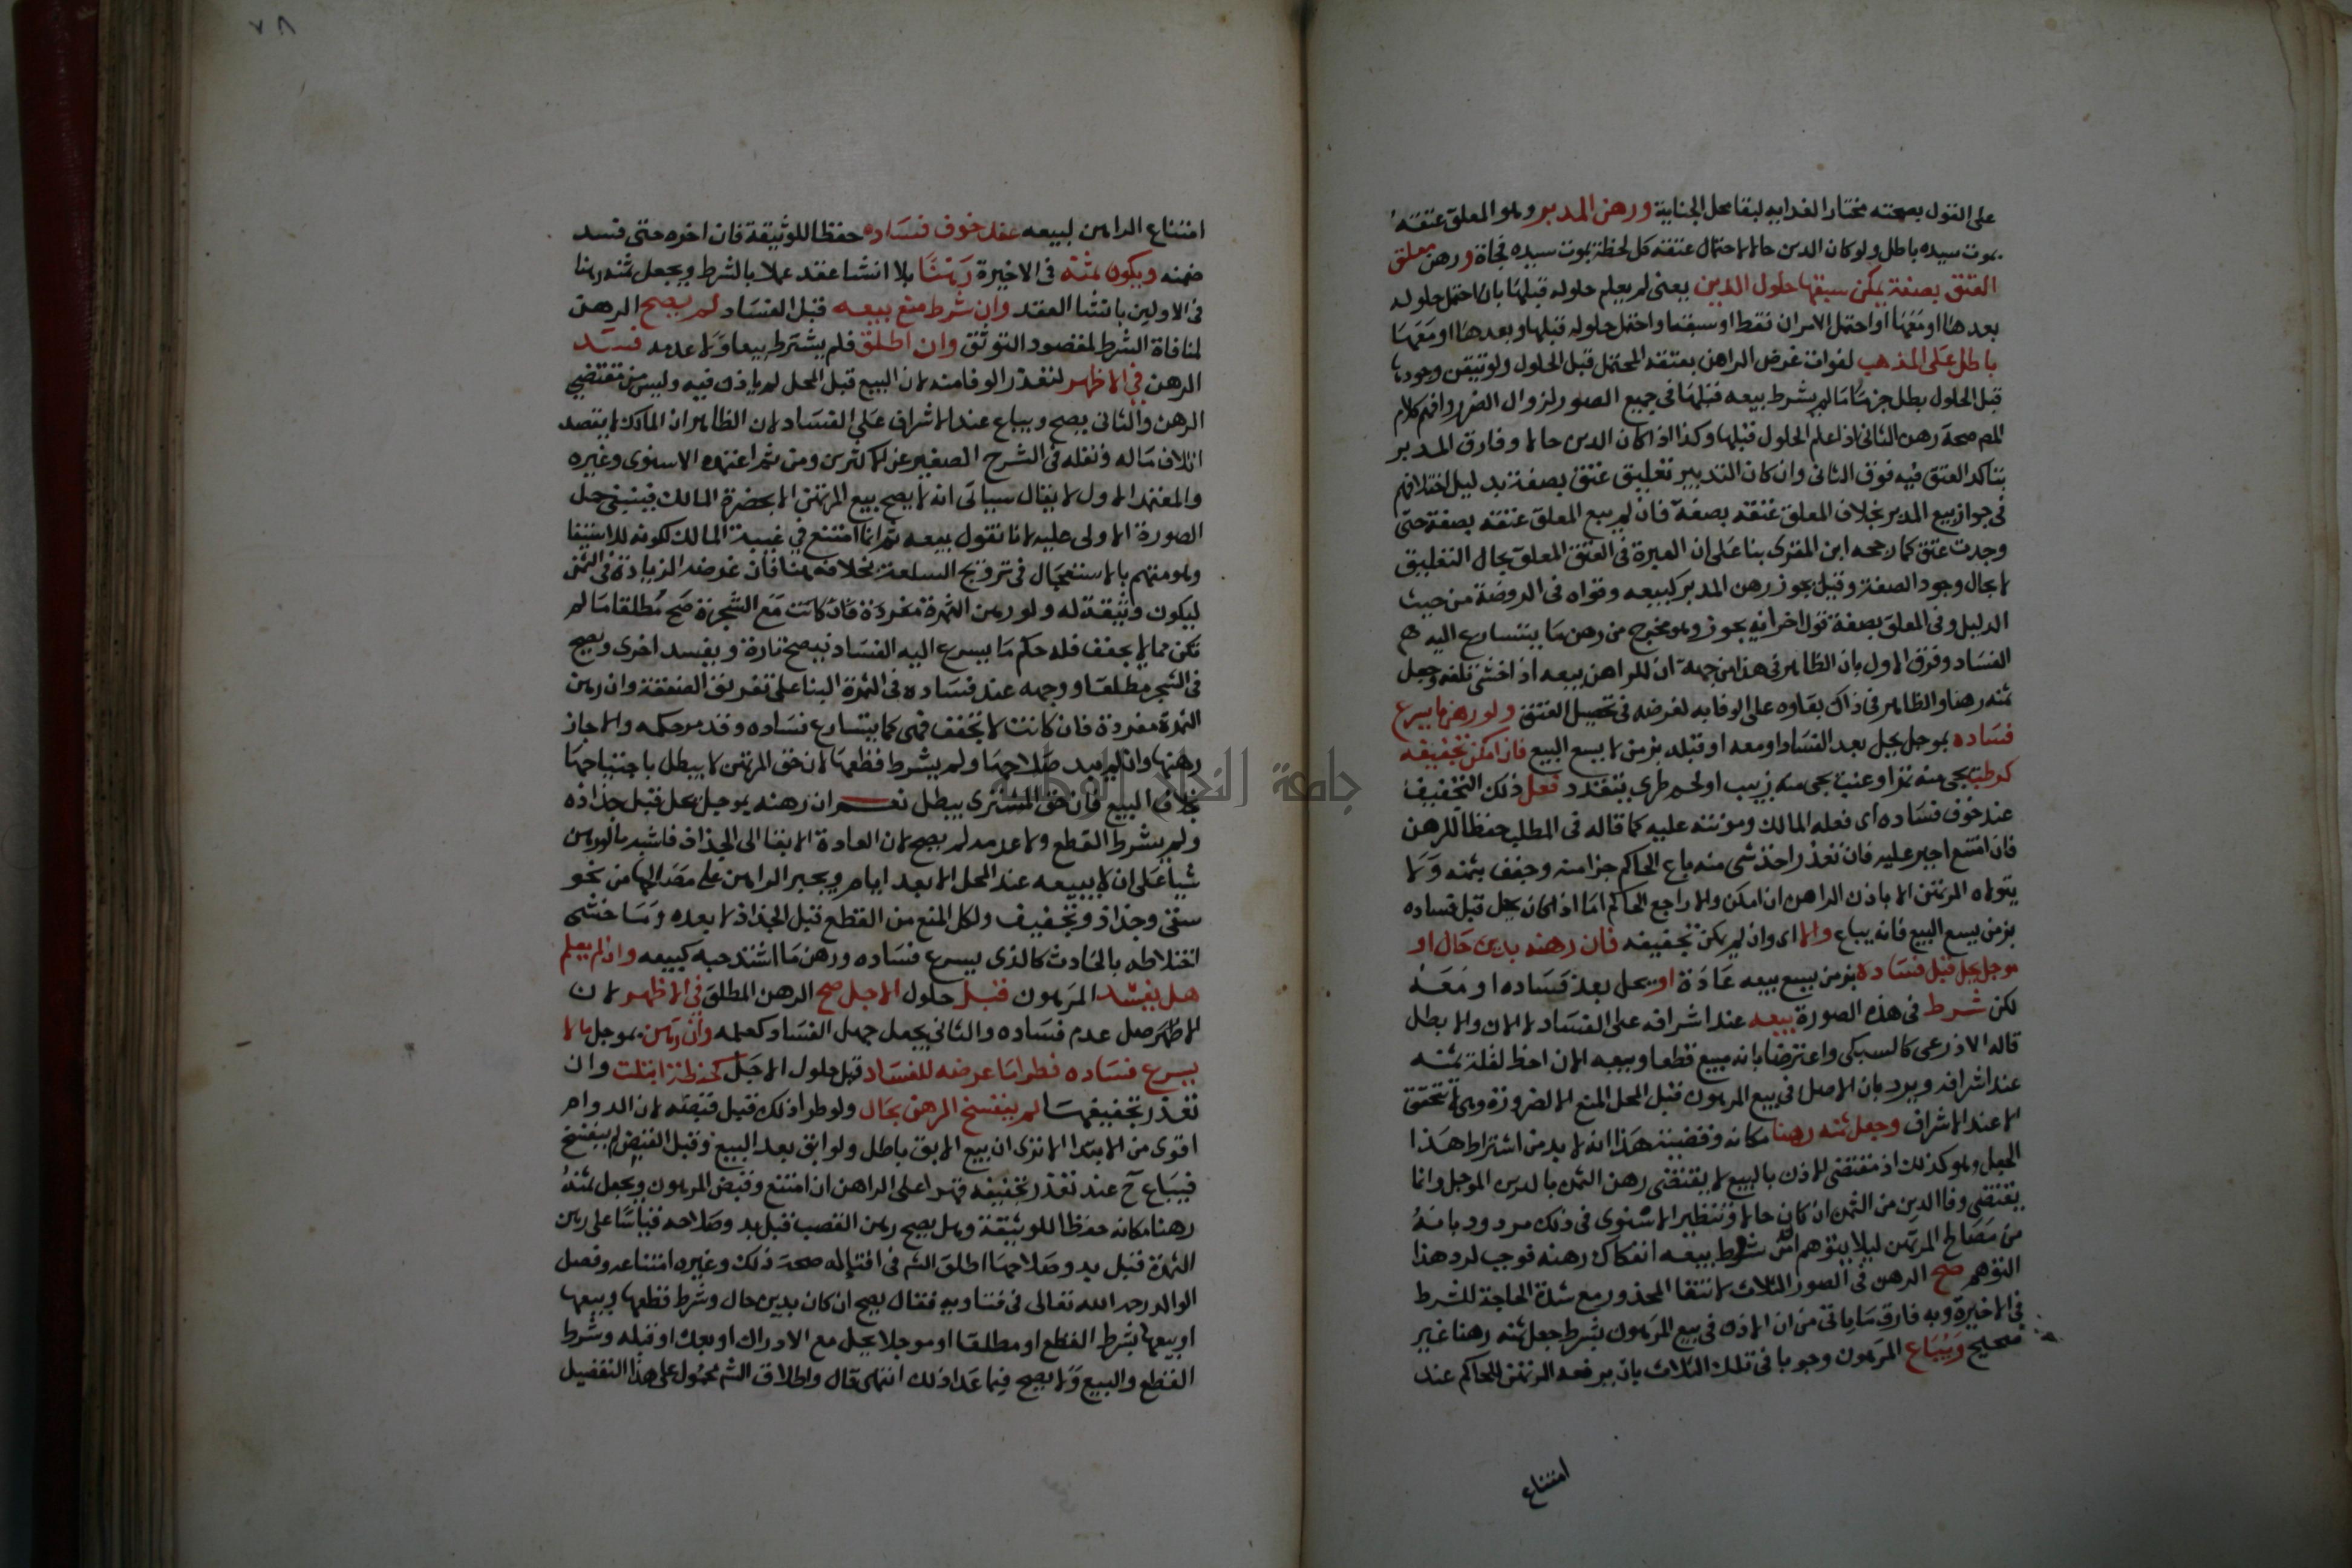 على القول بصحته مختار الفدابه لبقا محل الجناية ورهن المدبر وهو المعلق عتقه
بموت سيده باطل ولو كان الدين حالا لاحتمال عتقه كل لحظة بموت سيده فجاة ورهن معلق
العتق بصفة يمكن سبقها حلول الدين يعنى لم يعلم حلوله قبلها بان احتمل حلوله
بعدها او معها او احتمل الامران فقط او سبقها واحتمل حلوله قبلها وبعدها او معها
باطل على المذهب لفوات غرض الراهن بعتقه المحتمل قبل الحلول ولو تيقن وجودها
قبل الحلول بطل جزما ما لم يشرط بيعه قبلها فى جميع الصور لزوال الضرر وافهم كلام
المص صحة رهن الثانى اذا علم الحلول قبلها وكذا اذا كان الدين حالا وفارق المدبر
بتاكد العتق فيه فوق الثانى وان كان التدبير تعليق عتق بصفة بدليل اختلافهم
فى جواز بيع المدبر بخلاف المعلق عتقه بصفة فان لم يبع المعلق عتقه بصفة حتى
وجدت عتق كما رجحه ابن المقرى بنا على ان العبرة فى العتق المعلق بحال التعليق
لا بحال وجود الصفة وقيل يجوز رهن المدبر كبيعه وقواه فى الروضة من حيث
الدليل وفى المعلق بصفة قول اخر انه يجوز وهو مخرج من رهن ما يتسارع اليه
الفساد وفرق الاول بان الظاهر فى هذا من جهة ان للراهن بيعه اذا خشى تلفه وجعل
ثمنه رهنا والظاهر فى ذاك بقاوه على الوفا به لغرضه فى تحصيل العتق ولو رهن ما يسرع
فساده بموجل يحل بعد الفساد او معه او قبله بزمن لا يسع البيع فان امكن تجفيفه
كرطب يجى منه تمر او عنب يجى منه زبيب او لحم طرى يتقدد فعل ذلك التجفيف
عند خوف فساده اى فعله المالك ومونته عليه كما قاله فى المطلب حفظا للرهن
فان امتنع اجبر عليه فان تعذر اخذ شى منه باع الحاكم جزا منه وجفف بثمنه ولا
يتولاه المرتهن الا باذن الراهن ان امكن والا راجع الحاكم اما اذا كان يحل قبل فساده
بزمن يسع البيع فانه يباع والا اى وان لم يكن تجفيفه فان رهنه بدين حال او
موجل يحل قبل فساده بزمن يسع بيعه عادة او يحل بعد فساده او معه
لكن شرط فى هذه الصورة بيعه عند اشرافه على الفساد لا الان والا بطل
قاله الاذرعى كالسبكى واعترضا بانه مبيع قطعا وبيعه الان احظ لقلة ثمنه
عند اشرافه ويرد بان الاصل فى بيع المرهون قبل المحل المنع الا لضرورة وهى لا تتحقق
الا عند الاشراف وجعل ثمنه رهنا مكانه وقضية هذا انه لا بد من اشتراط هذا
الجعل وهو كذلك اذ مقتضى الاذن بالبيع لا يقتضى رهن الثمن بالدين الموجل وانما
يقتضى وفا الدين من الثمن ان كان حالا وتنظير الاسنوى فى ذلك مردود بانه
من مصالح المرتهن ليلا يتوهم ان شرط بيعه انفكاك رهنه فوجب لرد هذا
التوهم صح الرهن فى الصور الثلاث لانتفا المحذور مع شدة الحاجة للشرط
فى الاخيرة وبه فارق ما ياتى من ان الاذن فى بيع المرهون بشرط جعل ثمنه رهنا غير
صحيح ويباع المرهون وجوبا فى تلك الثلاث بان يرفعه المرتهن للحاكم عند
امتناع
امتناع الراهن لبيعه عند خوف فساده حفظا للوثيقة فان اخره حتى فسد
ضمنه ويكون ثمنه فى الاخيرة رهنا بلا انشا عقد عملا بالشرط ويجعل ثمنه رهنا
فى الاولين بانشا العقد وان شرط منع بيعه قبل الفساد لم يصح الرهن
لمنافاة الشرط لمقصود التوثق وان اطلق فلم يشترط بيعا ولا عدمه فسد
الرهن فى الاظهر لتعذر الوفا منه لان البيع قبل المحل لم ياذن فيه وليس من مقتضى
الرهن والثانى يصح ويباع عند الاشراف على الفساد لان الظاهر ان المالك لا يقصد
اتلاف ماله ونقله فى الشرح الصغير عن الاكثرين ومن ثم اعتمده الاسنوى وغيره
والمعتمد الاول لا يقال سياتى انه لا يصح بيع المرتهن الا بحضرة المالك فينبغى حمل
الصورة الاولى عليه لانا نقول بيعه ثم انما امتنع فى غيبة المالك لكونه للاستيفا
وهو متهم بالاستعجال فى ترويج السلعة بخلافه هنا فان غرضه الزيادة فى الثمن
ليكون وثيقة له ولو رهن الثمرة مفردة فان كانت مع الشجرة صح مطلقا ما لم
تكن مما لا يجفف فله حكم ما يسرع اليه الفساد فيصح تارة ويفسد اخرى ويصح
فى الشجر مطلقا ووجهه عند فساده فى الثمرة البنا على تفريق الصفقة وان رهن
الثمرة مفردة فان كانت لا تجفف فهى كما يتسارع فساده وقد مر حكمه والا جاز
رهنها وان لم يبد صلاحها ولم يشرط قطعها لان حق المرتهن لا يبطل باجتياحها
بخلاف البيع فان حق المشترى يبطل نعم ان رهنه بموجل يحل قبل جذاذه
ولم يشرط القطع ولا عدمه لم يصح لان العادة الابقا الى الجذاذ فاشبه ما لو رهن
شيا على ان لا يبيعه عند المحل الا بعد ايام ويجبر الراهن على مصالحها من نحو
سقى وجذاذ وتجفيف ولكل المنع من القطع قبل الجذاذ لا بعده وما خشى
اختلاطه بالحادث كالذى يسرع فساده ورهن ما اشتد حبه كبيعه وان لم يعلم
هل يفسد المرهون قبل حلول الاجل صح الرهن المطلق فى الاظهر لان
الاصل عدم فساده والثانى يجعل جهل الفساد كعلمه وان رهن بموجل ما لا
يسرع فساده فطرا ما عرضه للفساد قبل حلول الاجل كحنطة ابتلت وان
تعذر تجفيفها لم ينفسخ الرهن بحال ولو طرا ذلك قبل قبضه لان الدوام
اقوى من الابتدا الا ترى ان بيع الابق باطل ولو ابق بعد البيع وقبل القبض لم ينفسخ
فيباع ح عند تعذر تجفيفه قهرا على الراهن ان امتنع وقبض المرهون ويجعل ثمنه
رهنا مكانه حفظا للوثيقة وهل يصح رهن القصب قبل بدو صلاحه قياسا على رهن
الثمرة قبل بدو صلاحها اطلق الش فى افتا له صحة ذلك وغيره امتناعه وفصل
الوالد رحمه الله تعالى فى فتاويه فقال يصح ان كان بدين حال وشرط قطعها وبيعها
او بيعها بشرط القطع او مطلقا او موجلا يحل مع الادراك او بعده او قبله وشرط
القطع والبيع ولا يصح فيما عدا ذلك انتهى قال واطلاق الش محمول على هذا التفصيل
جامعة النجاح الوطنية
٧٨